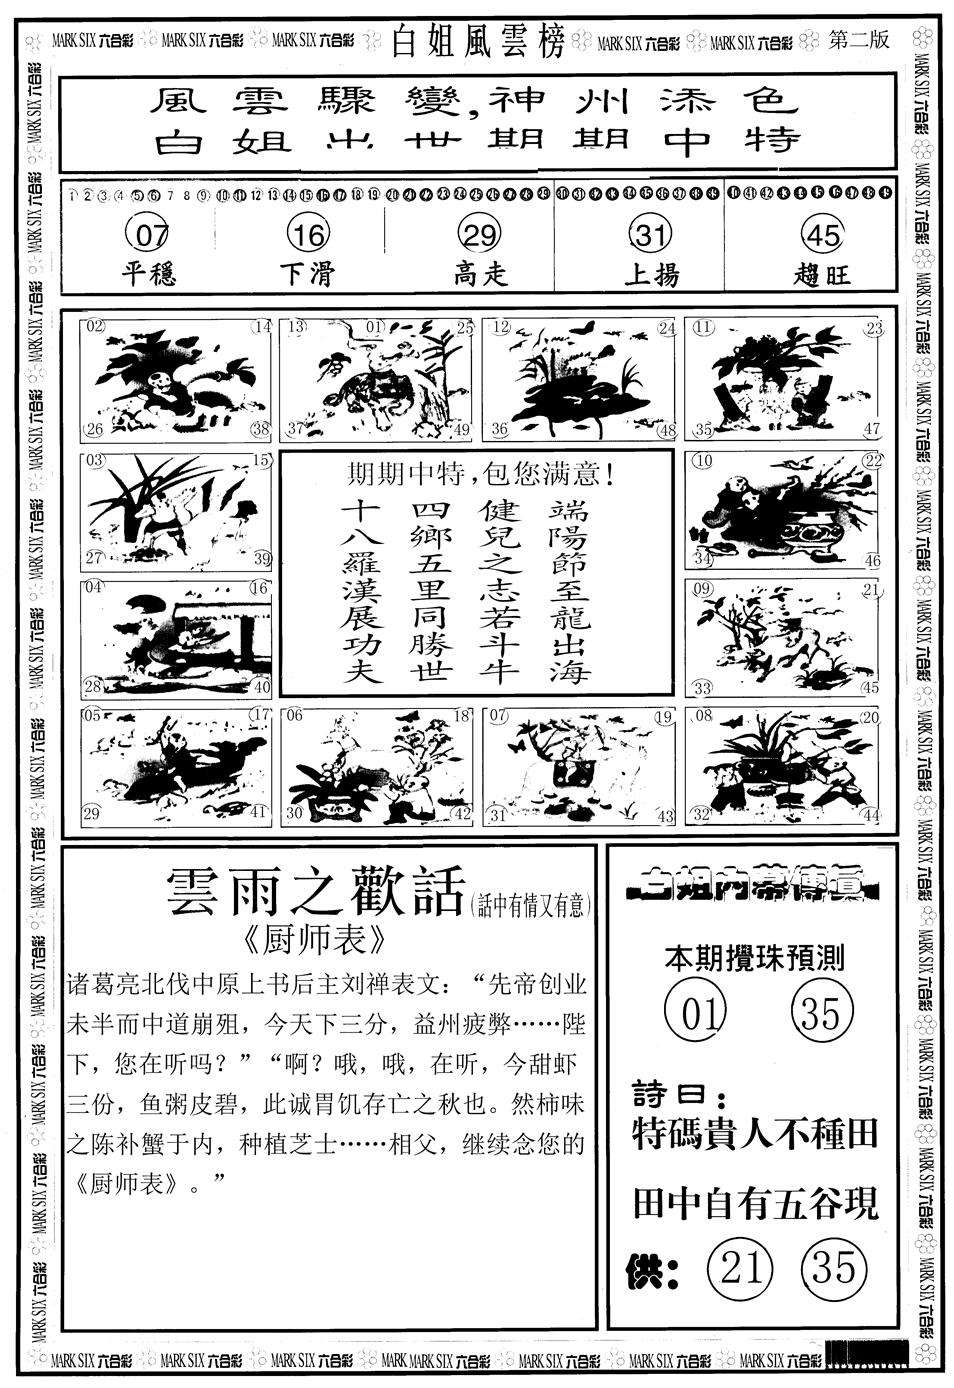 MARK SIX 六合彩 MARK SIX 六合彩 MARK SIX 六合彩 白姐風雲榜 MARK SIX 六合彩 MARK SIX 六合彩 第二版
風雲驟變,神州添色
白姐出世期期中特
1 2 3 4 5 6 7 8 9 10 11 12 13 14 15 16 17 18 19 20 21 22 23 24 25 26 27 28 29 30 31 32 33 34 35 36 37 38 39 40 41 42 43 44 45 46 47 48 49
07 16 29 31 45
平穩 下滑 高走 上揚 趨旺
02 14 13 01 25 12 24 11 23
26 38 37 49 36 48 35 47
03 15
27 39
04 16
28 40
期期中特,包您满意!
端陽節至龍出海
健兒之志若斗牛
四鄉五里同勝世
十八羅漢展功夫
10 22
34 46
09 21
33 45
05 17 06 18 07 19 08 20
29 41 30 42 31 43 32 44
雲雨之歡話(話中有情又有意)
《厨师表》
诸葛亮北伐中原上书后主刘禅表文：“先帝创业
未半而中道崩殂，今天下三分，益州疲弊……陛
下，您在听吗？”“啊？哦，哦，在听，今甜虾
三份，鱼粥皮碧，此诚胃饥存亡之秋也。然柿味
之陈补蟹于内，种植芝士……相父，继续念您的
《厨师表》。”
白姐内幕傳真
本期攪珠預測
01 35
詩曰：
特碼貴人不種田
田中自有五谷現
供：21 35
MARK SIX 六合彩 MARK SIX 六合彩 MARK SIX 六合彩 MARK MARK SIX 六合彩 MARK SIX 六合彩 MARK SIX 六合彩 MARK SIX 六合彩